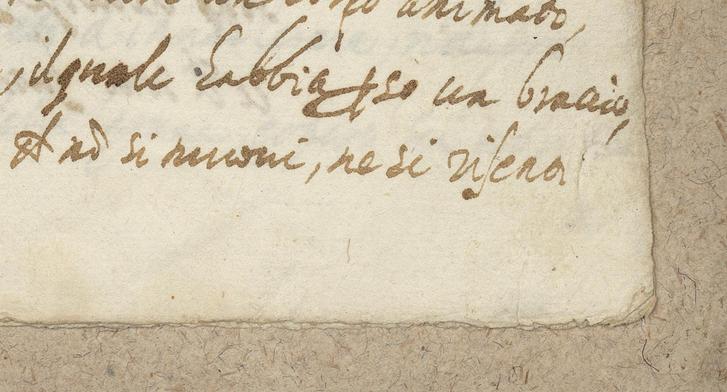 animato,
, ilquale habbia pso un braccio,
et nō si muoui, ne si risena